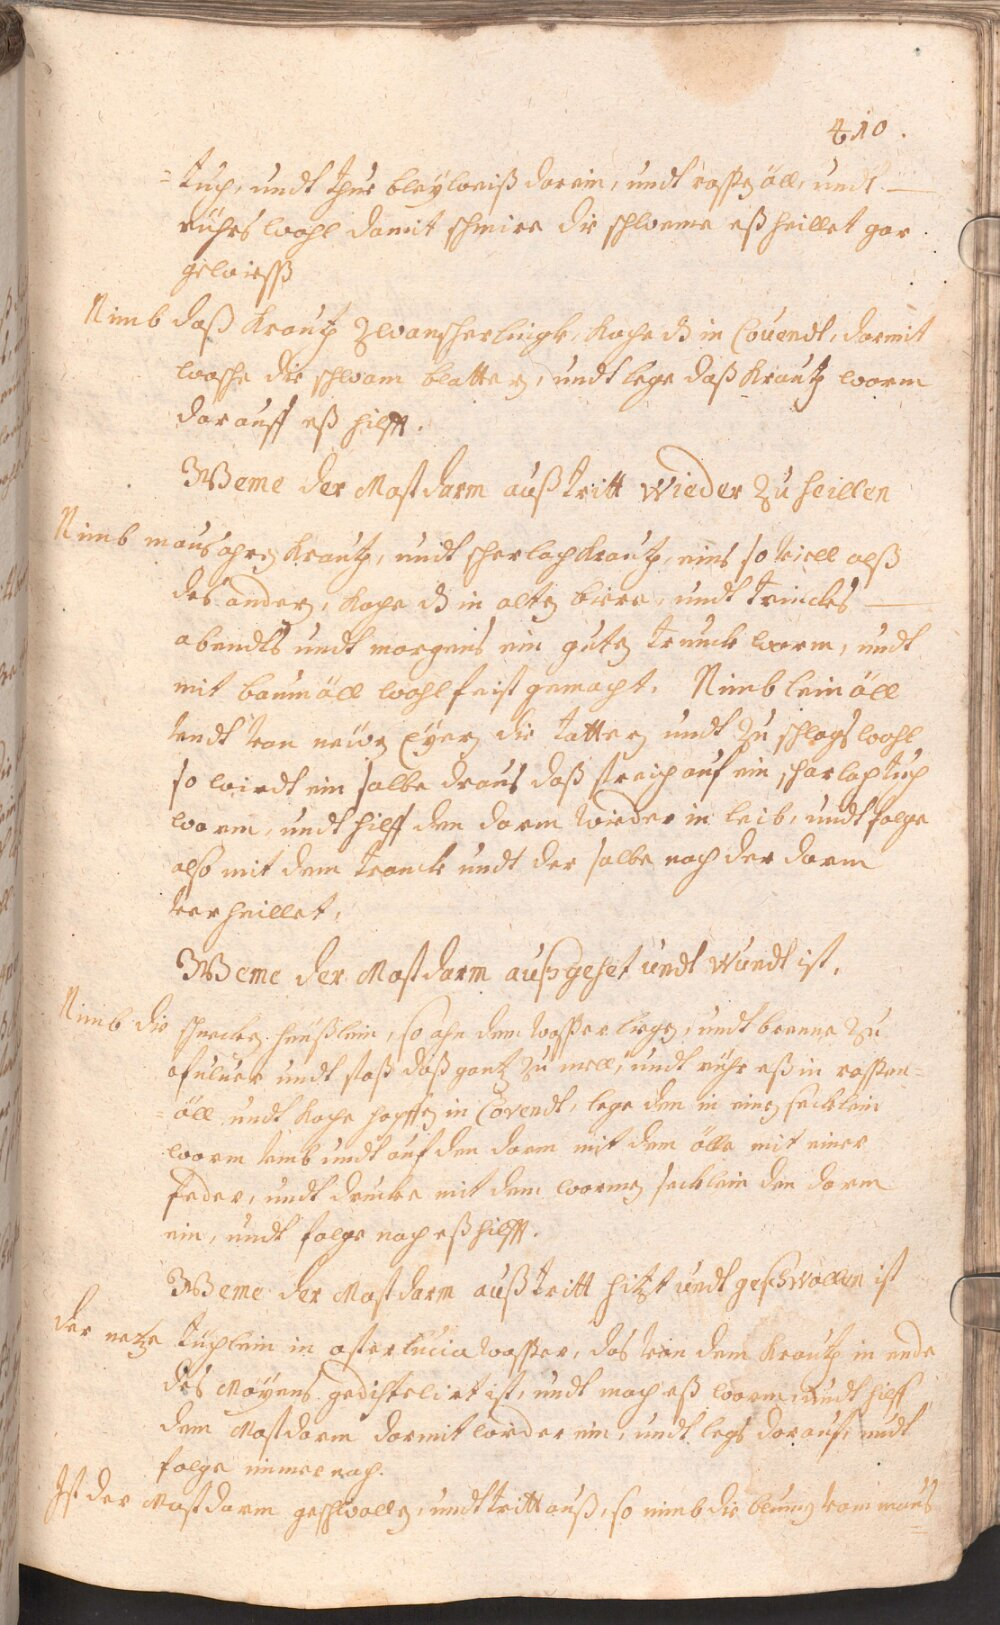 410.
=tuch, undt thue bleyweiß darein, undt rosßen öll, undt
rührs wohl damit schmire die schweme eß heillet gar
gewieß
Nimb daß Krautz Zwanscherlingk, Koche es in Couendt, darmit
wasche die schwam blattern, undt lege daß Krautz warm
darauff eß hilfft.
Weme der Mastdarm außtritt wieder zu heillen
Nimb mausohren Krautz, undt scherlach Krautz, eins so viell alß
des andern, Koche es in alten biere, undt trinckes
abendts undt morgens ein guten trunck warm, undt
mit baumöll wohl feist gemacht. Nimb lein öll
undt von neüen Eyern die tottern undt zu schlags wohl
so wirdt ein salbe draus daß streich auf ein scharlach tuch
warm, undt hilff den darm wieder in leib, undt folge
also mit dem tranck undt der salbe nach der darm
verheillet.
Weme der Mastdarm außgehet undt wundt ist.
Nimb die schnecken heüßlein, so ahn dem wasßer liegen, undt brenne zu
pfulver undt stoß daß gantz zu mell, undt rühr eß in rosßen=
=öll undt Koche hopffen in Covendt, lege den in einen secklein
warm umb undt auf den darm mit dem ölle mit einer
feder, undt drucke mit dem warmen secklein den darm
ein, undt folge nach eß hilfft.
Weme der Mastdarm außtritt hitzt undt geschwollen ist
der netze tüchlein in osterlucia wasßer, das von dem Krautz in ende
des Meyens gedisteliert ist, undt mach eß warm, undt hilff
dem Mastdarm darmit wieder ein, undt legs darauf, undt
folge immer nach.
Ist der Mastdarm geschwollen, undt tritt auß, so nimb die blumen vom maus=